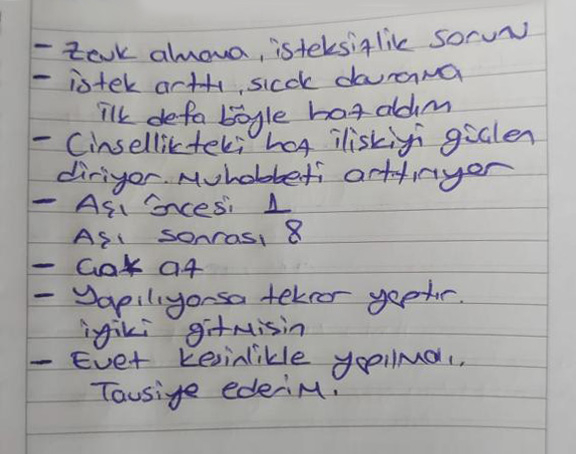 - Zevk almama, isteksizlik sorunu
- istek arttı, sıcak davranma
ilk defa böyle haz aldım
- Cinsellikteki haz ilişkiyi güçlen
diriyor. Muhabbeti arttırıyor
- Aşı öncesi 1
Aşı sonrası 8
- Çok az
- Yapılıyorsa tekrar yaptır.
iyiki gitmişin
- Evet kesinlikle yapılmalı.
Tavsiye ederim.